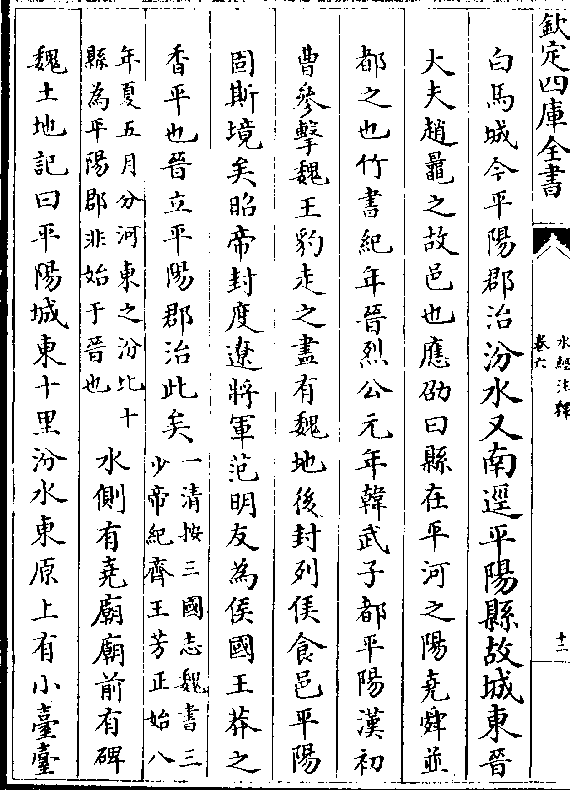 欽定四庫全書
水經注釋
卷六
十二
白馬城今平陽郡治汾水又南逕平陽縣故城東晉
大夫趙鼂之故邑也應劭曰縣在平河之陽堯舜並
都之也竹書紀年晉烈公元年韓武子都平陽漢初
曹參擊魏王豹走之盡有魏地後封列侯食邑平陽
固斯境矣昭帝封度遼將軍范明友為侯國王莽之
香平也晉立平陽郡治此矣一清按三國志魏書三
少帝紀齊王芳正始八
年夏五月分河東之汾北十
縣為平陽郡非始于晉也水側有堯廟廟前有碑
魏土地記曰平陽城東十里汾水東原上有小臺臺